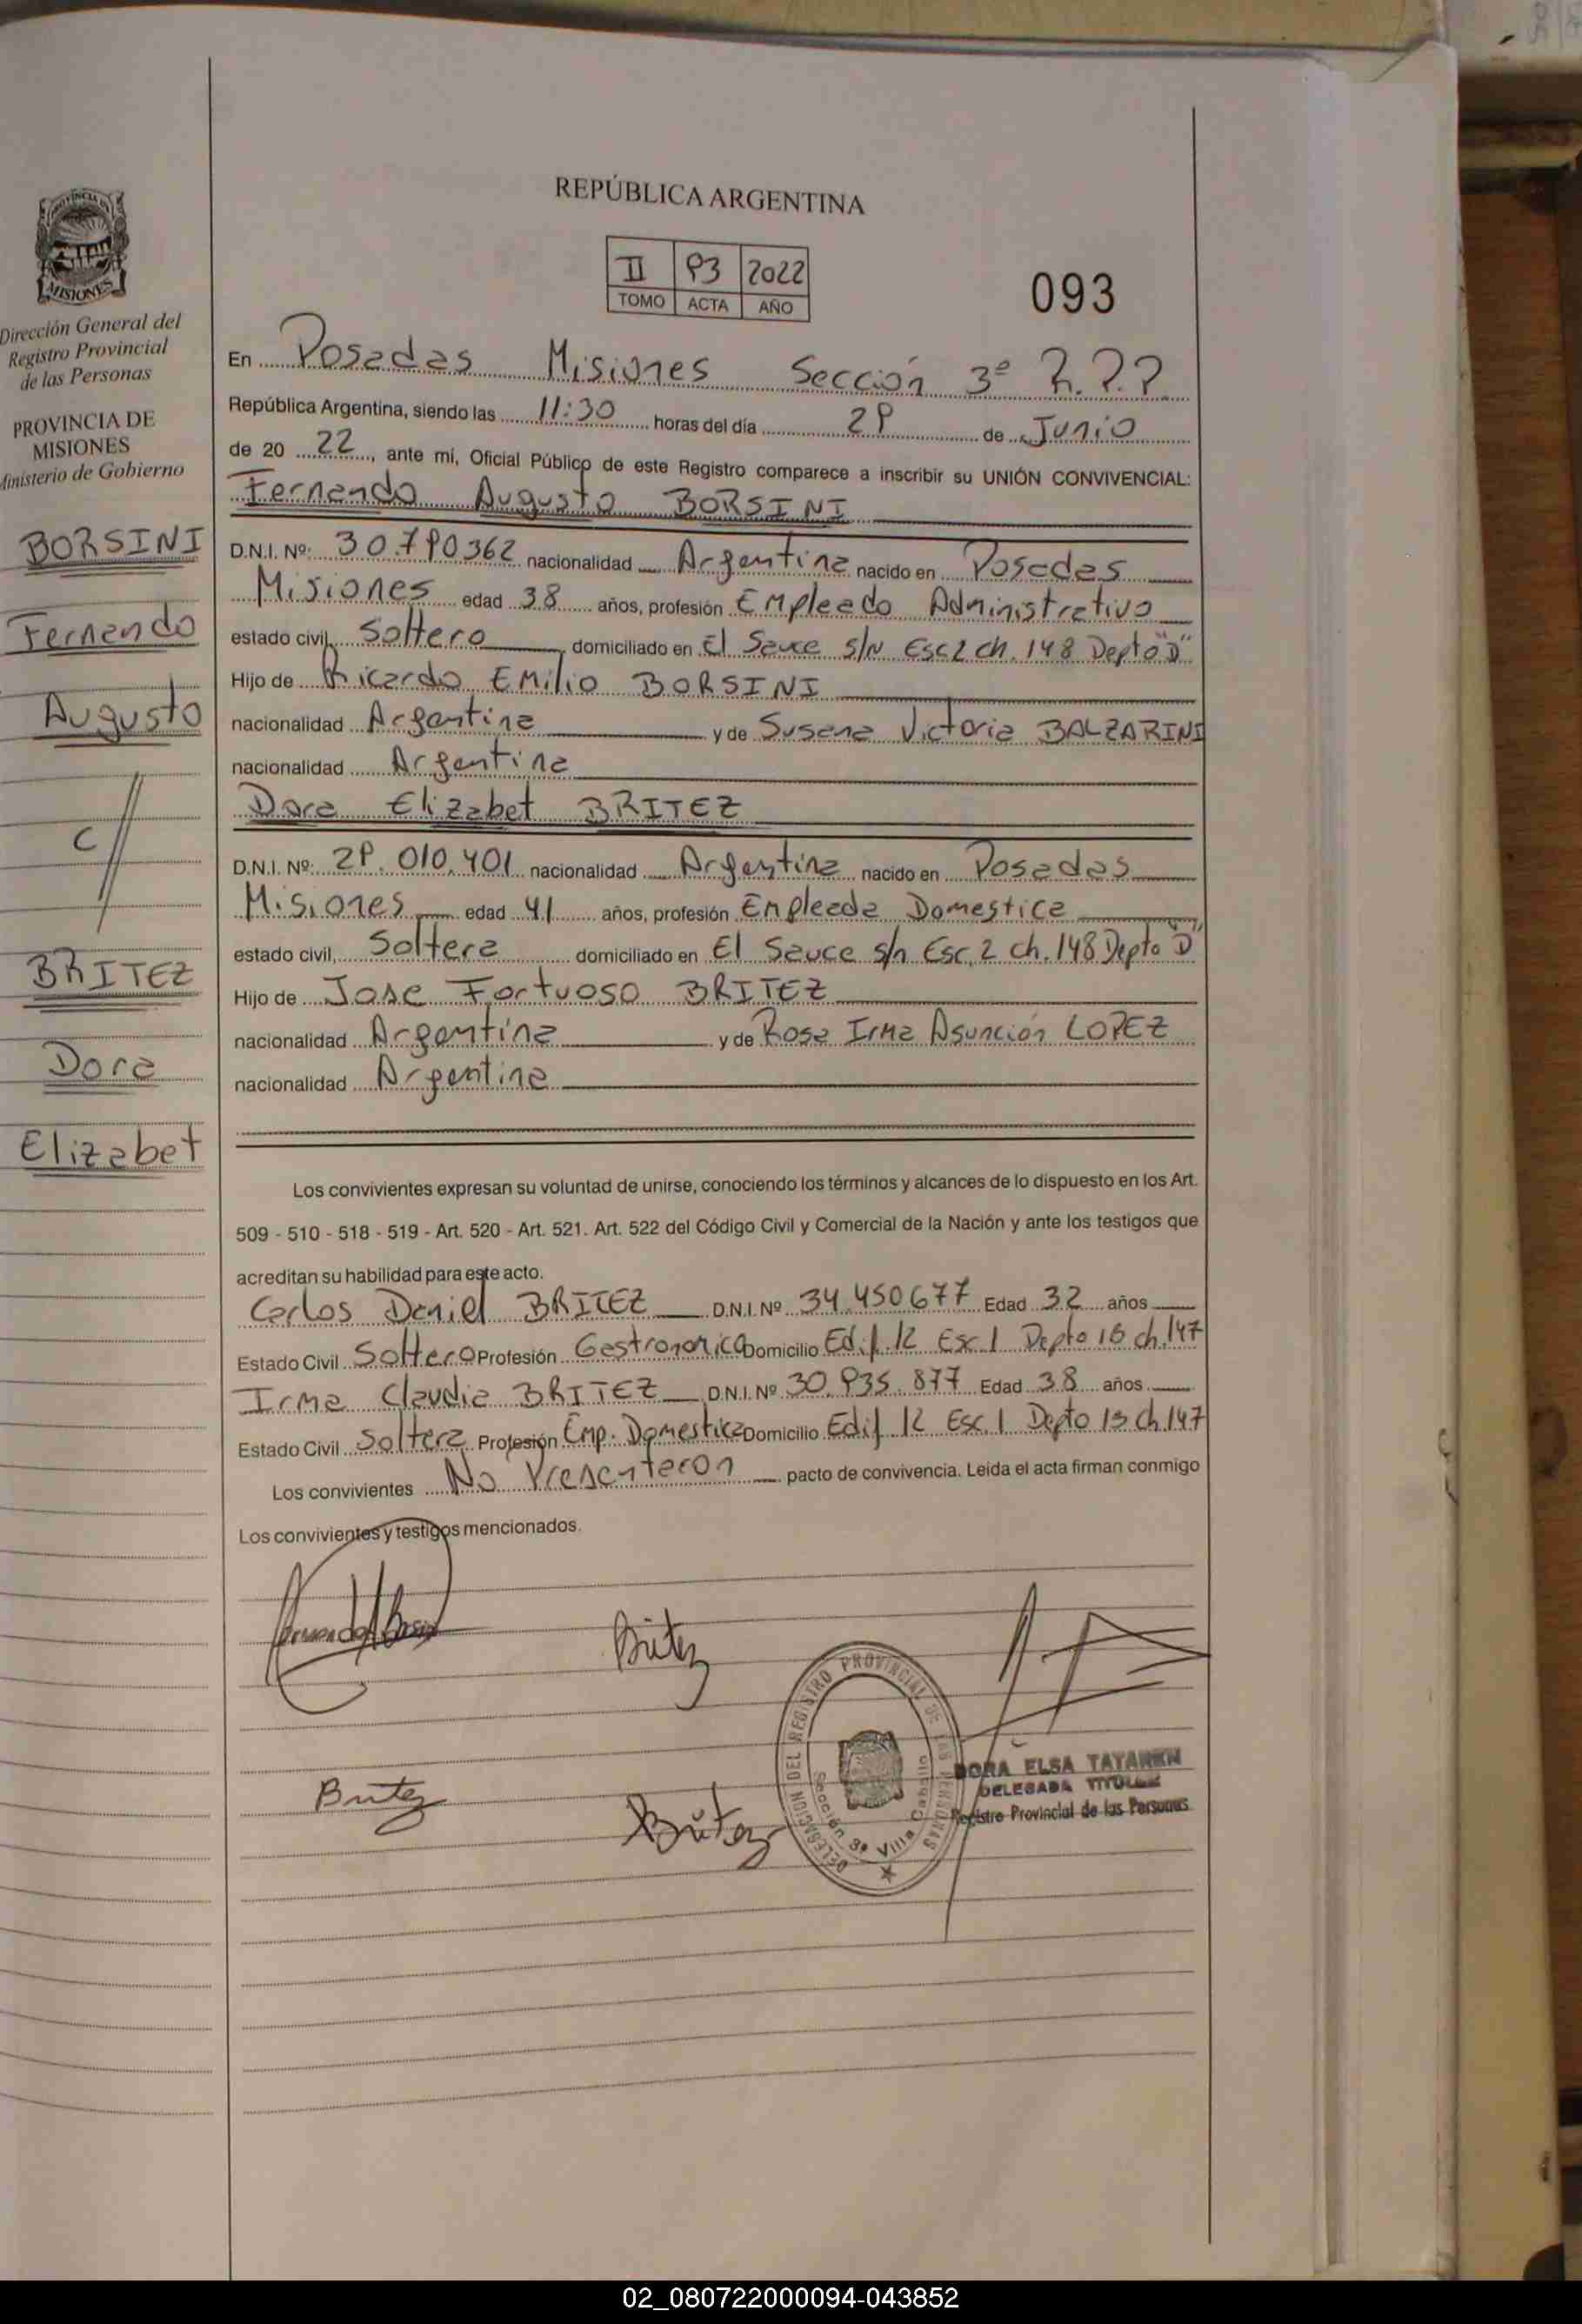 REPÚBLICA ARGENTINA
II 93 2022
TOMO ACTA AÑO
093
MISIONES
Dirección General del
Registro Provincial
de las Personas
PROVINCIA DE
MISIONES
Ministerio de Gobierno
BORSINI
Fernando
Augusto
C//
BRITEZ
Dora
Elizabet
En Posadas Misiones Sección 3º R.P.P
República Argentina, siendo las 11:30 horas del día 29 de Junio
de 20 22, ante mi, Oficial Público de este Registro comparece a inscribir su UNIÓN CONVIVENCIAL:
Fernando Augusto BORSINI
D.N.I. Nº: 30.790362 nacionalidad Argentina nacido en Posadas
Misiones edad 38 años, profesión Empleado Administrativo
estado civil, Soltero domiciliado en El Sauce s/N Esc 2 ch. 148 Depto "D"
Hijo de Ricardo Emilio BORSINI
nacionalidad Argentina y de Susana Victoria BALZARINI
nacionalidad Argentina
Dora Elizabet BRITEZ
D.N.I. Nº: 29.010.401 nacionalidad Argentina nacido en Posadas
Misiones edad 41 años, profesión Empleada Domestica
estado civil, Soltera domiciliado en El Sauce s/n Esc. 2 ch. 148 Depto "D"
Hijo de Jose Fortuoso BRITEZ
nacionalidad Argentina y de Rosa Irma Asunción LOPEZ
nacionalidad Argentina
Los convivientes expresan su voluntad de unirse, conociendo los términos y alcances de lo dispuesto en los Art.
509 - 510 - 518 - 519 - Art. 520 - Art. 521. Art. 522 del Código Civil y Comercial de la Nación y ante los testigos que
acreditan su habilidad para este acto.
Carlos Daniel BRITEZ D.N.I. Nº 34.450.677 Edad 32 años
Estado Civil Soltero Profesión Gestronomica Domicilio Edif. 12 Esc 1 Depto 15 ch. 147
Irma Claudia BRITEZ D.N.I. Nº 30.935.877 Edad 38 años
Estado Civil Soltera Profesión Emp. Domestica Domicilio Edif 12 Esc. 1 Depto 15 ch. 147
Los convivientes No Presentaron pacto de convivencia. Leida el acta firman conmigo
Los convivientes y testigos mencionados.
Britez
Britez
Britez
DELEGACION DEL REGISTRO PROVINCIAL DE LAS PERSONAS
Sección 3ª Villa Cabello
DORA ELSA TATAREN
DELEGADA TITULAR
Registro Provincial de las Personas
02_080722000094-043852